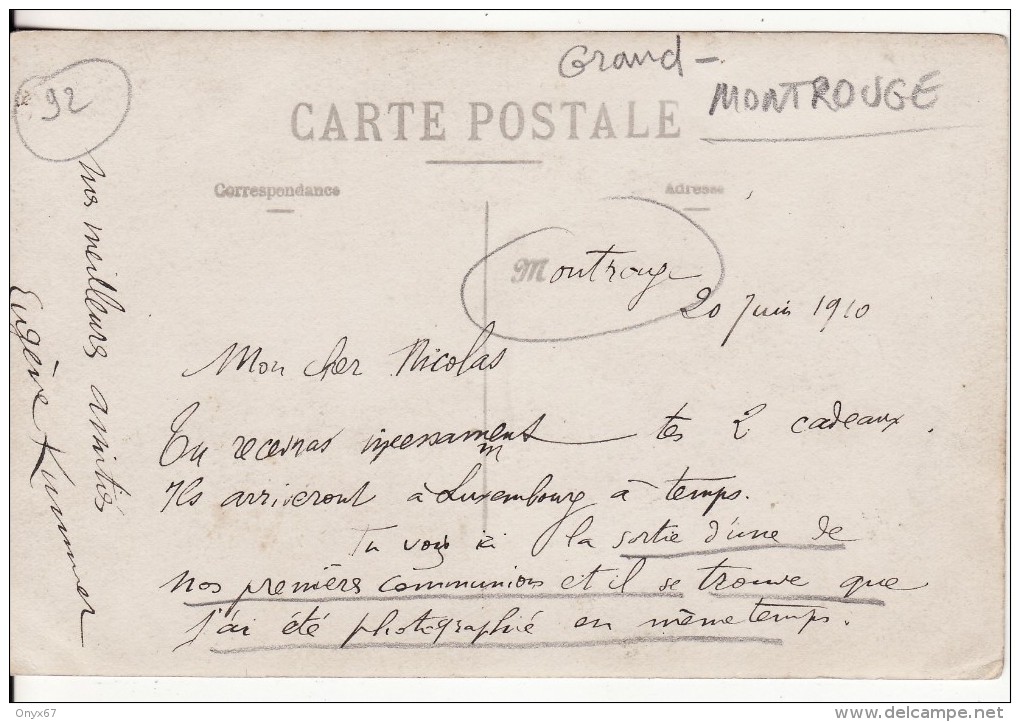 92
Grand -
MONTROUGE
CARTE POSTALE
Correspondance
Adresse
Montrouge
20 Juin 1910
Mon cher Nicolas
Tu recevras incessamment tes 2 cadeaux.
Ils arriveront à Luxembourg à temps.
Tu vois ici la sortie d'une de
nos premières communions et il se trouve que
j'ai été photographié en même temps.
nos meilleurs amitiés
Eugène Kummer
Onyx67
delcampe.net